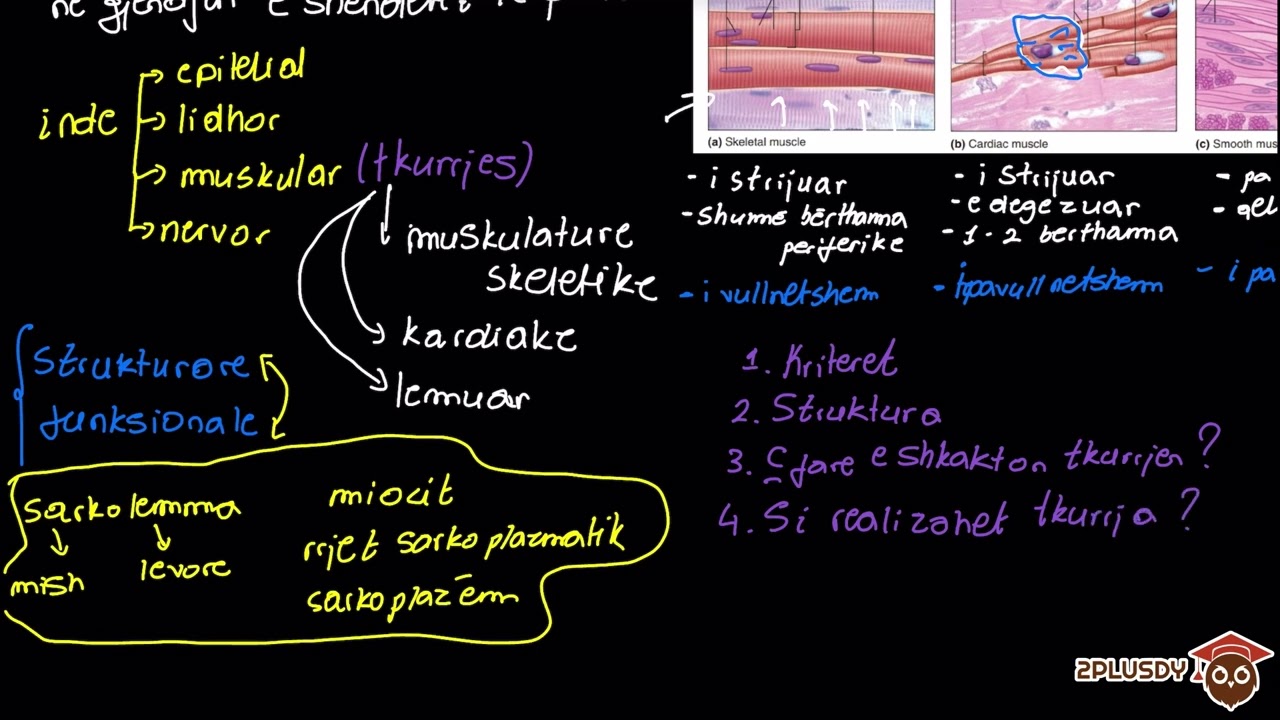 ne gjendjen e shendetit te
inde
epitelial
lidhor
muskular (tkurrjes)
nervor
muskulature
skeletike
kardiake
lemuar
strukturore
funksionale
sarkolemma
mish
levore
miocit
rrjet sarkoplazmatik
sarkoplazëm
(a) Skeletal muscle
(b) Cardiac muscle
(c) Smooth mus
- i strijuar
- shume bërthama
periferike
- i vullnetshem
- i strijuar
- e degezuar
- 1-2 berthama
- i pavullnetshem
- pa
- qel
- i pa
1. Kriteret
2. Struktura
3. Çfare e shkakton tkurrjen ?
4. Si realizohet tkurrja ?
2PLUSDY